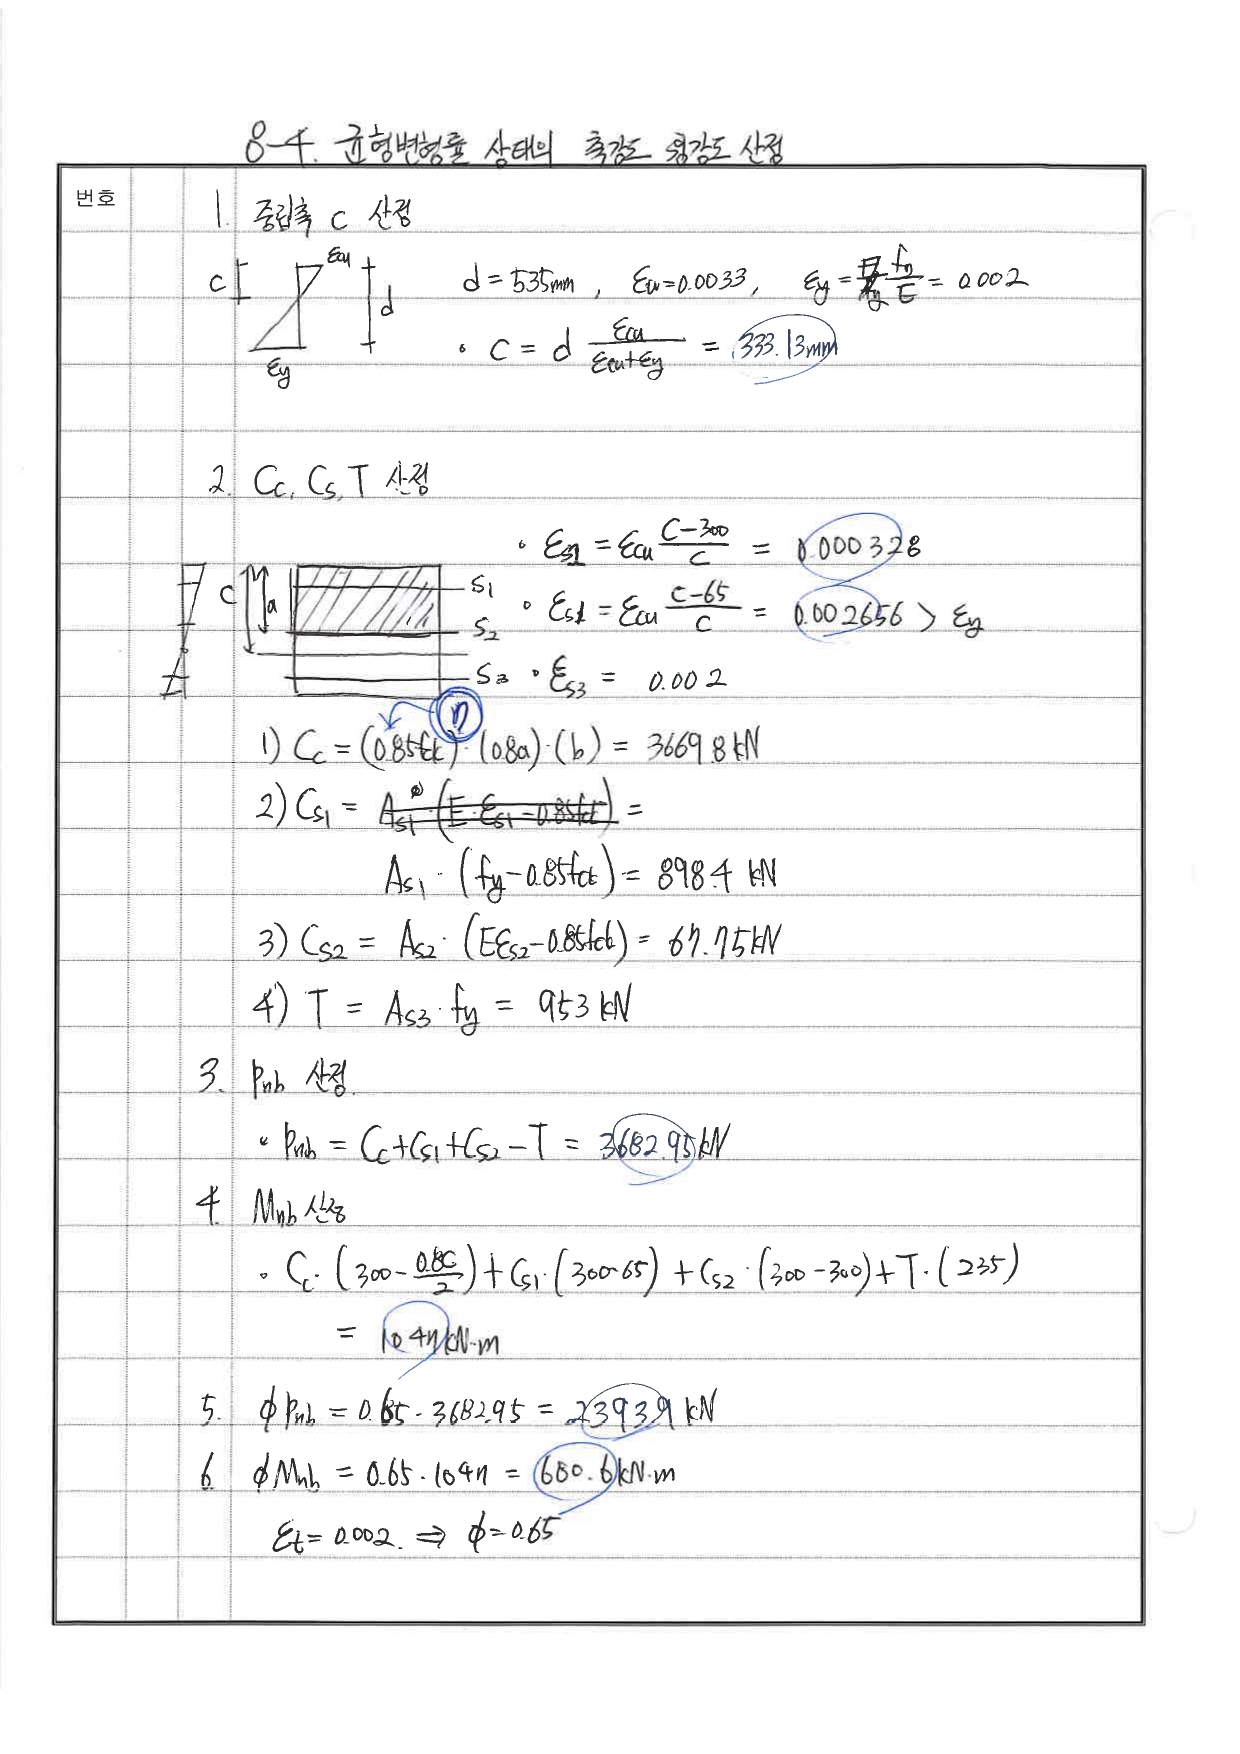 8-4. 균형변형률 상태의 축강도 휨강도 산정
번호
1. 중립축 c 산정
C
εcu
d
εy
d = 535mm , εcu = 0.0033, εy = fy/E = 0.002
• C = d εcu/(εcu+εy) = 333.13mm
2. Cc, Cs, T 산정
• εs2 = εcu (C-300)/C = 0.000328
C
a
S1
S2
S3
• εs1 = εcu (C-65)/C = 0.002656 > εy
• εs3 = 0.002
η
1) Cc = (0.85fck)·(0.8a)·(b) = 3669.8 kN
2) Cs1 = As1·(E·εs1-0.85fck) =
As1·(fy-0.85fck) = 898.4 kN
3) Cs2 = As2·(Eεs2-0.85fck) = 67.75kN
4) T = As3·fy = 953 kN
3. Pnb 산정.
• Pnb = Cc+Cs1+Cs2-T = 3682.95 kN
4. Mnb 산정
• Cc·(300-0.8C/2)+Cs1·(300-65)+Cs2·(300-300)+T·(235)
= 1047 kN·m
5. φPnb = 0.65·3682.95 = 2393.9 kN
6. φMnb = 0.65·1047 = 680.6 kN·m
εt = 0.002. ⇒ φ = 0.65